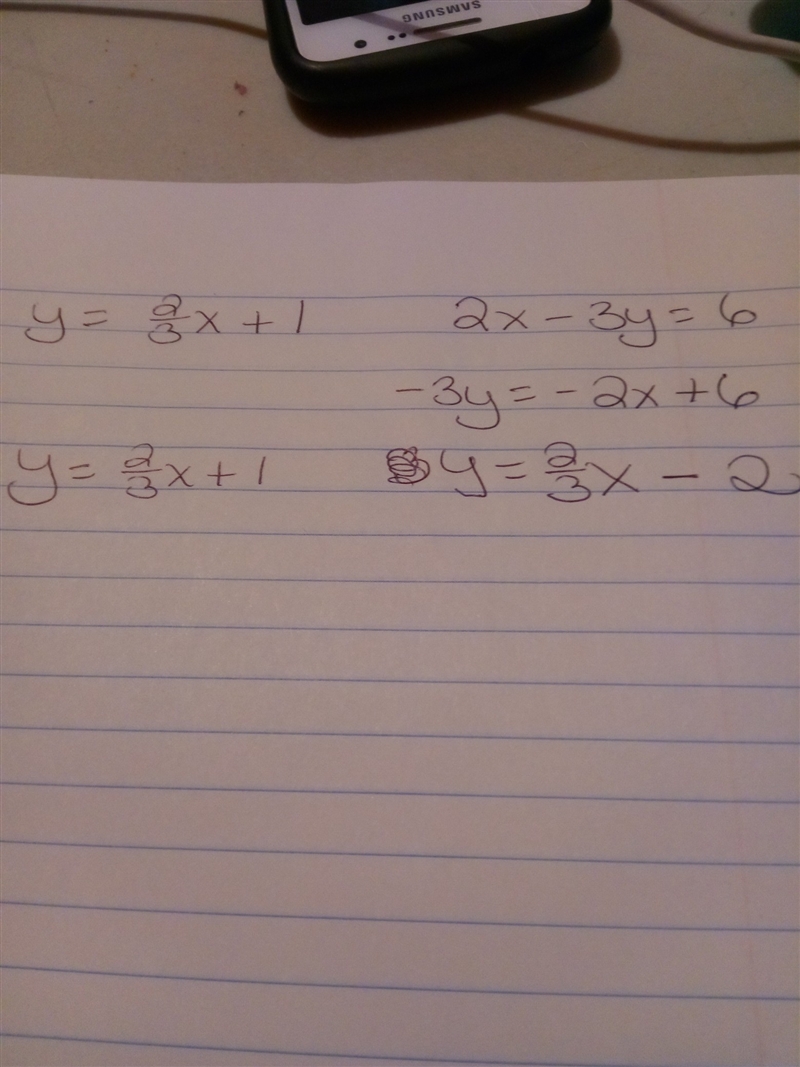 SAMSUNG
y = 2/3x + 1    2x - 3y = 6
-3y = -2x + 6
y = 2/3x + 1    y = 2/3x - 2